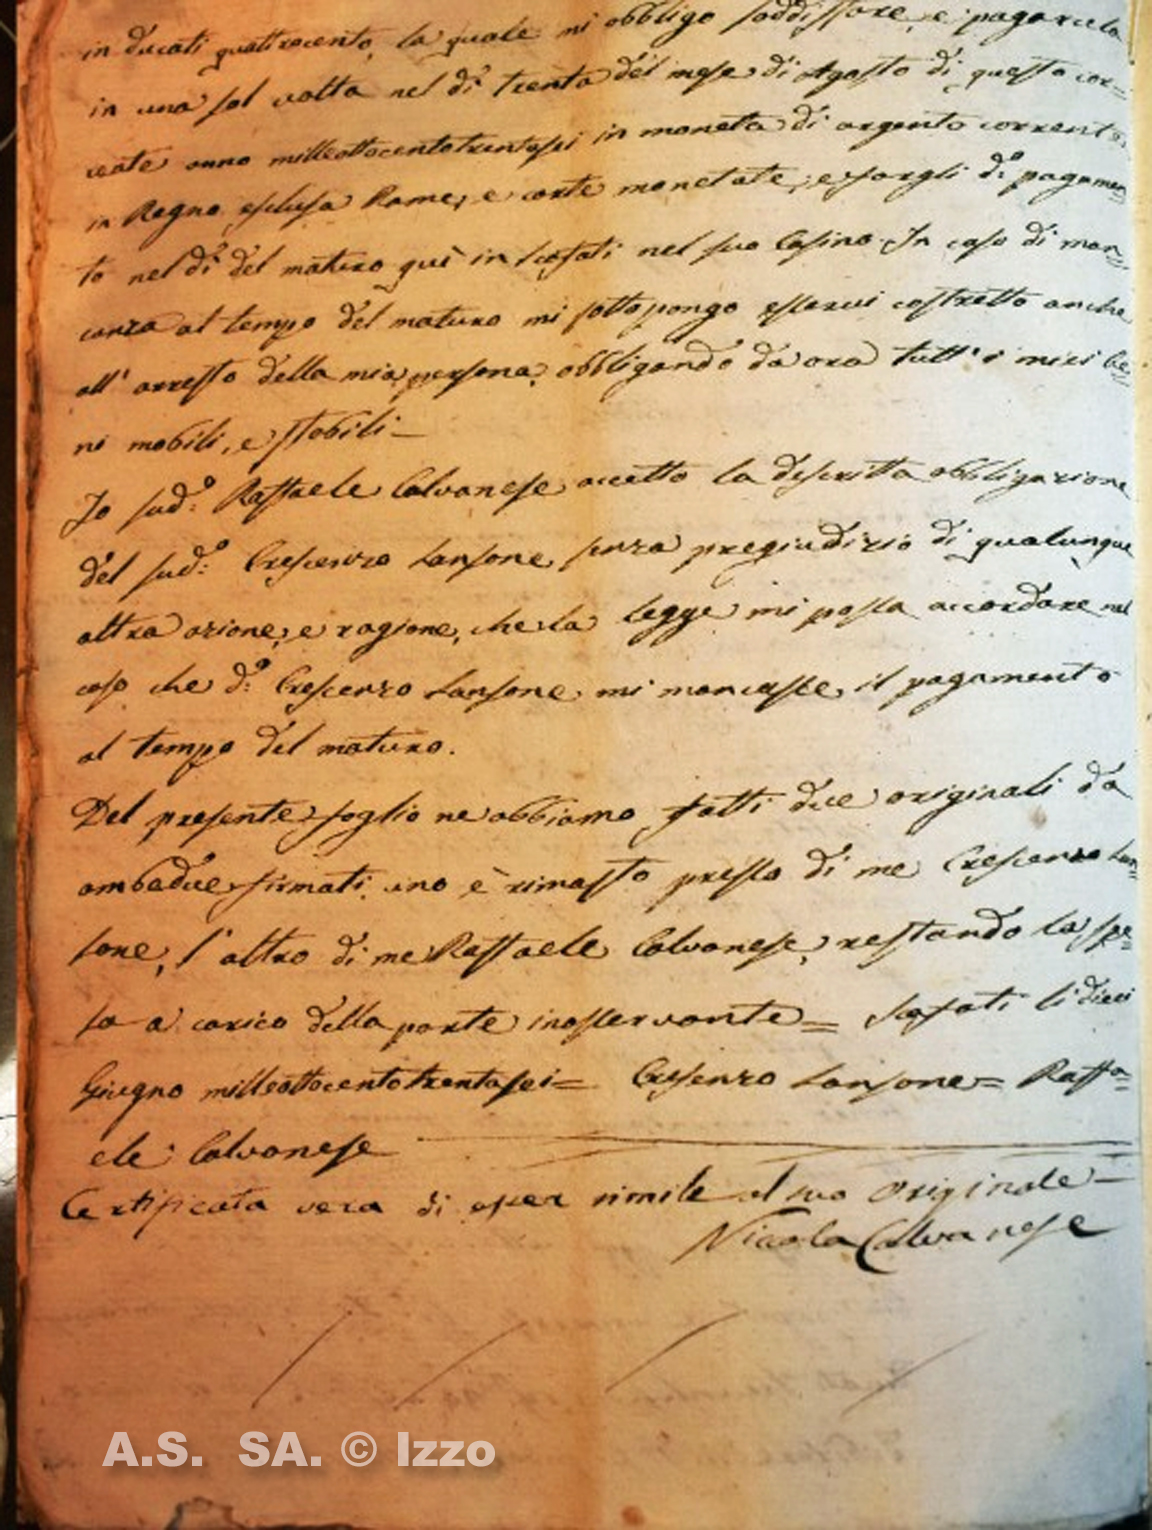 in ducati quattrocento, la quale mi obbligo soddisfare, e pagarcela
in una sol volta nel dì trenta del mese di Agosto di questo cor=
rente anno milleottocentotrentasei in moneta di argento corrente
in Regno esclusa Rame, e carte monetate; e fargli d.o pagamen=
to nel dì del maturo quì in Scafati nel suo Casino. In caso di man=
canza al tempo del maturo mi sottopongo esservi costretto anche
all' arresto della mia persona, obbligando da ora tutt' i miei be=
ni mobili, e stabili—
Io sud.o Raffaele Calvanese accetto la descritta obbligazione
del sud.o Crescenzo Sansone, senza pregiudizio di qualunque
altra azione, e ragione, che la legge mi possa accordare nel
caso che d.o Crescenzo Sansone mi mancasse il pagamento
al tempo del maturo.
Del presente foglio ne abbiamo fatti due originali da
ambedue firmati, uno è rimasto presso di me Crescenzo San=
sone, l' altro di me Raffaele Calvanese, restando la spe=
sa a carico della parte inosservante= Scafati li dieci
Giugno milleottocentotrentasei= Crescenzo Sansone= Raffa=
ele Calvanese
Certificata vera di esser simile al suo originale—
Nicola Calvanese
A.S. SA. © Izzo